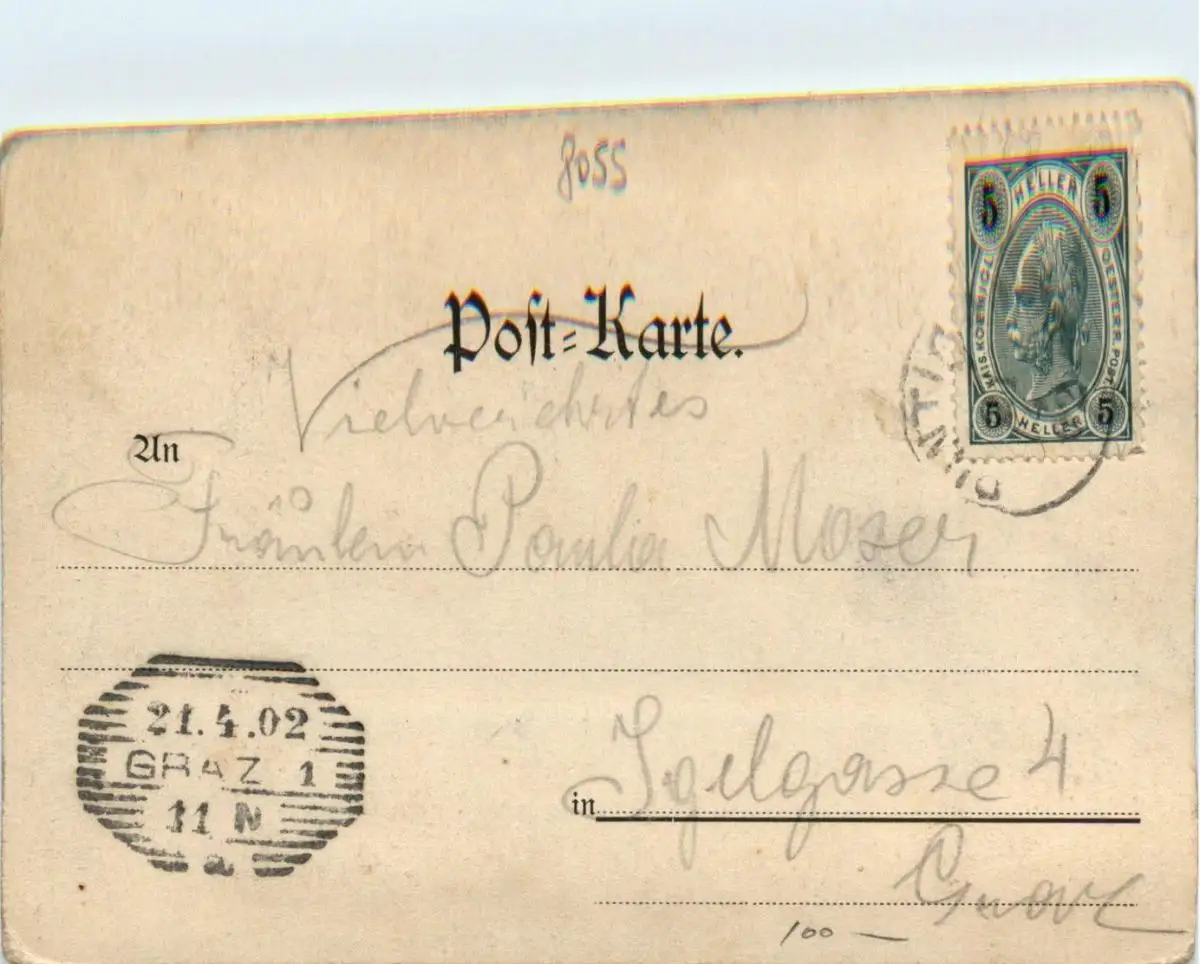 8055
5 HELLER 5
KAIS. KOENIGL. OESTERR. POST.
5 HELLER 5
Post-Karte.
Vielverehrtes
An
Fräulein Paula Moser
21.4.02
GRAZ 1
11 N
a
in Igelgasse 4
Graz
100 —